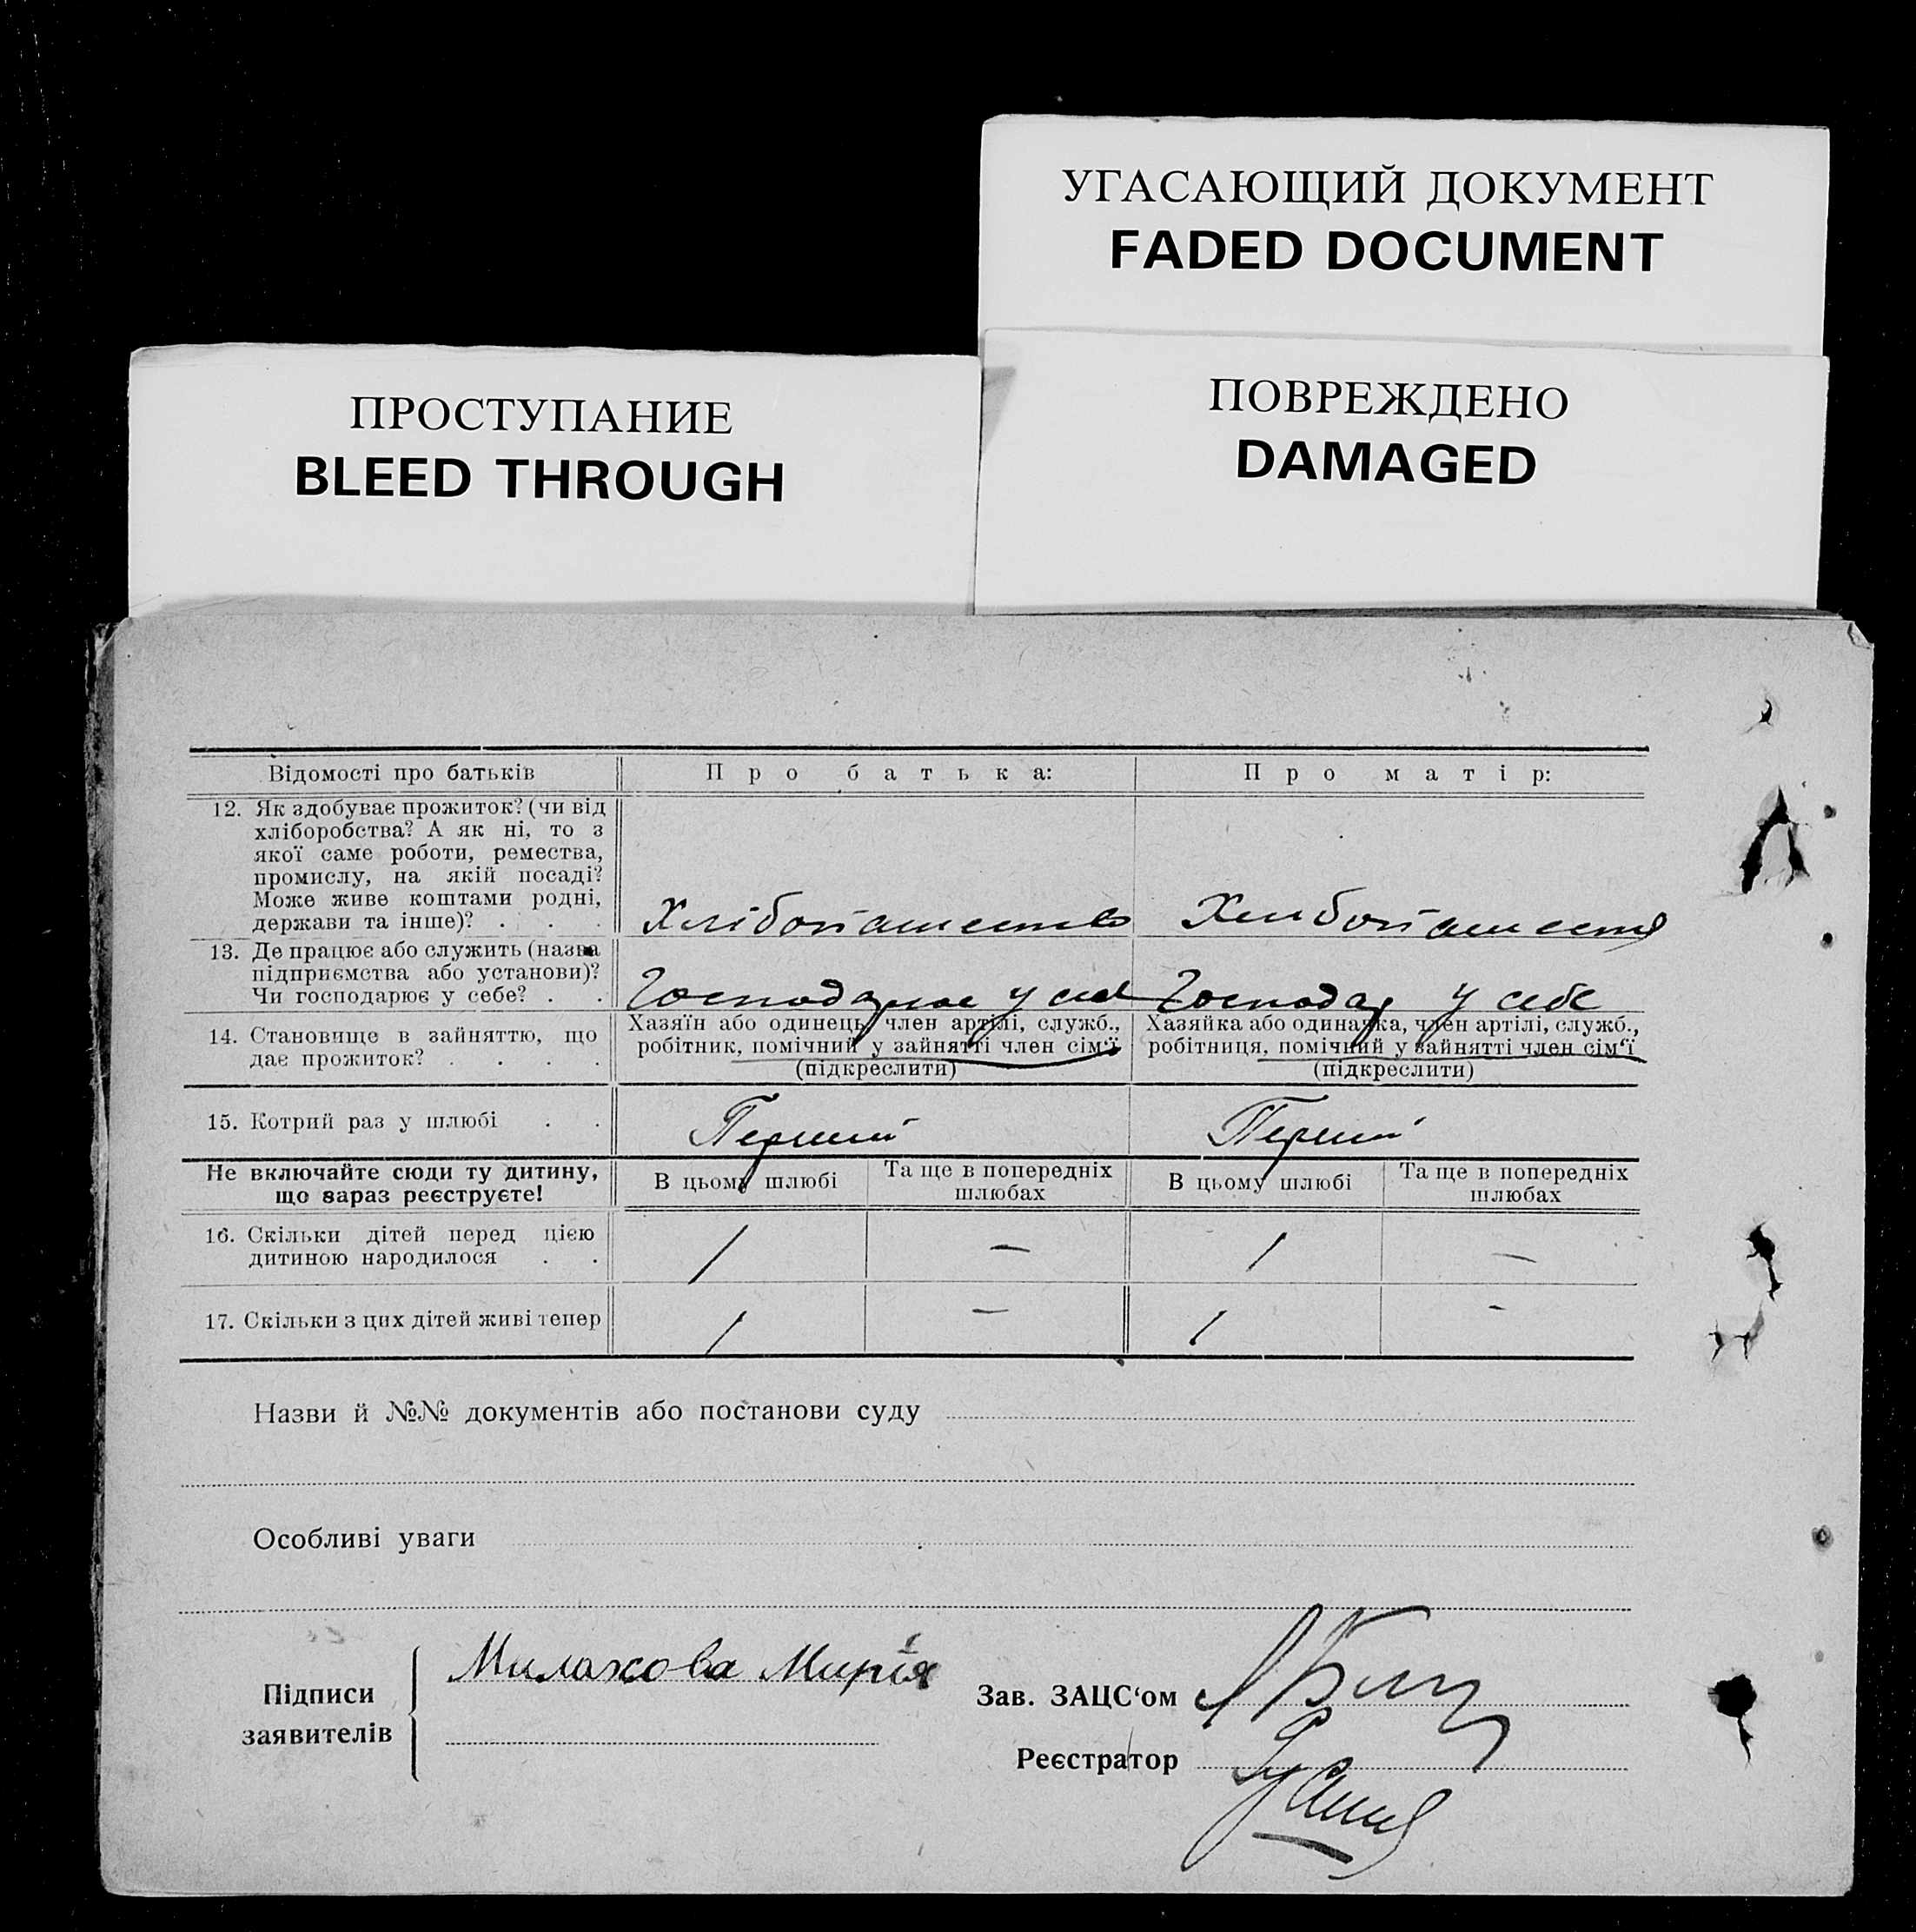 УГАСАЮЩИЙ ДОКУМЕНТ
FADED DOCUMENT
ПРОСТУПАНИЕ
BLEED THROUGH
ПОВРЕЖДЕНО
DAMAGED
Відомості про батьків
Про батька:
Про матір:
12. Як здобуває прожиток? (чи від
хліборобства? А як ні, то з
якої саме роботи, ремества,
промислу, на якій посаді?
Може живе коштами родні,
держави та інше)? . . .
Хлібопашество
Хлибопашество
13. Де працює або служить (назва
підприємства або установи)?
Чи господарює у себе? . .
Господарює у себе
Господар у себе
14. Становище в зайняттю, що
дає прожиток? . . . .
Хазяїн або одинець, член артілі, служб.,
робітник, помічний у зайнятті член сім'ї
(підкреслити)
Хазяйка або одиначка, член артілі, служб.,
робітниця, помічний у зайнятті член сім'ї
(підкреслити)
15. Котрий раз у шлюбі . .
Перший
Перший
Не включайте сюди ту дитину,
що зараз реєструєте!
В цьому шлюбі
Та ще в попередніх
шлюбах
В цьому шлюбі
Та ще в попередніх
шлюбах
16. Скільки дітей перед цією
дитиною народилося . .
1
—
1
—
17. Скільки з цих дітей живі тепер
1
—
1
-
Назви й №№ документів або постанови суду
Особливі уваги
Підписи
заявителів
Милахова Мирія
Зав. ЗАЦС'ом
Реєстратор